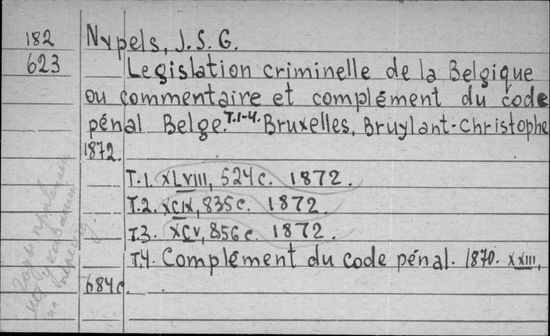 182
623
Nypels, J. S. G.
Legislation criminelle de la Belgique
ou commentaire et complément du code
pénal Belge. T.1-4. Bruxelles, Bruylant-Christophe
1872.
T.1. XLVIII, 524 c. 1872.
T.2. XCIX, 835 c. 1872.
T.3. XCV, 856 c. 1872.
T.4. Complément du code pénal. 1870. XXIII,
684 c.